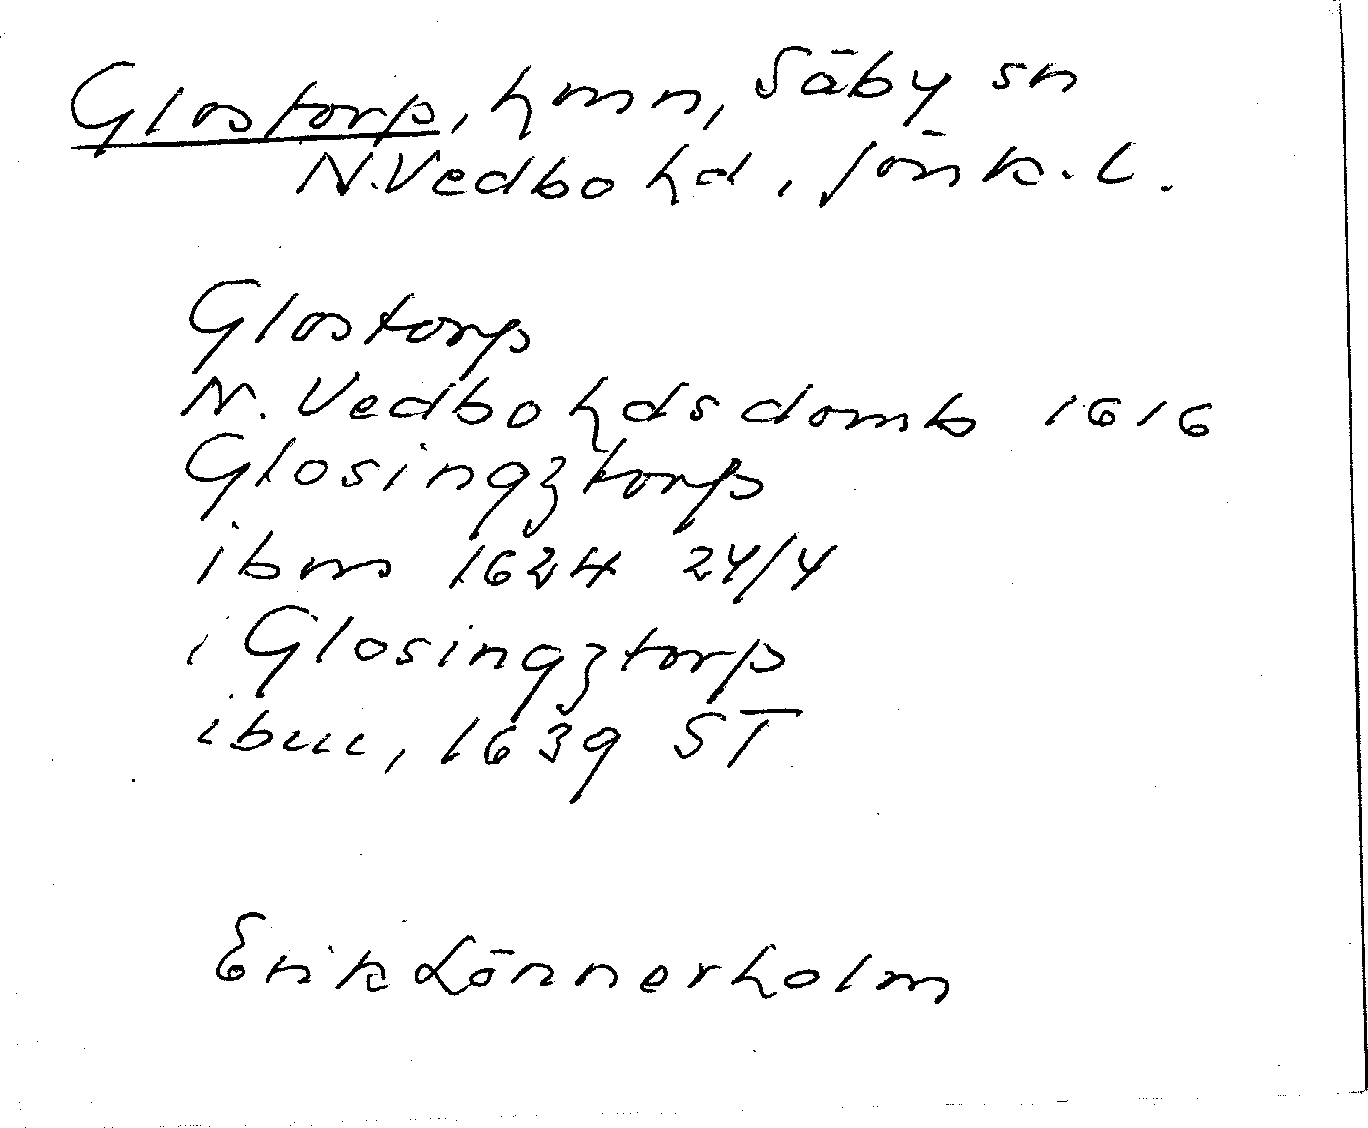 Glostorp, hmn, Säby sn
N. Vedbo hd, Jönk. l.
Glostorp
N. Vedbo hds domb 1616
Glosingztorp
ibm 1624 24/4
i Glosingztorp
ibm, 1639 ST
Erik Lönnerholm